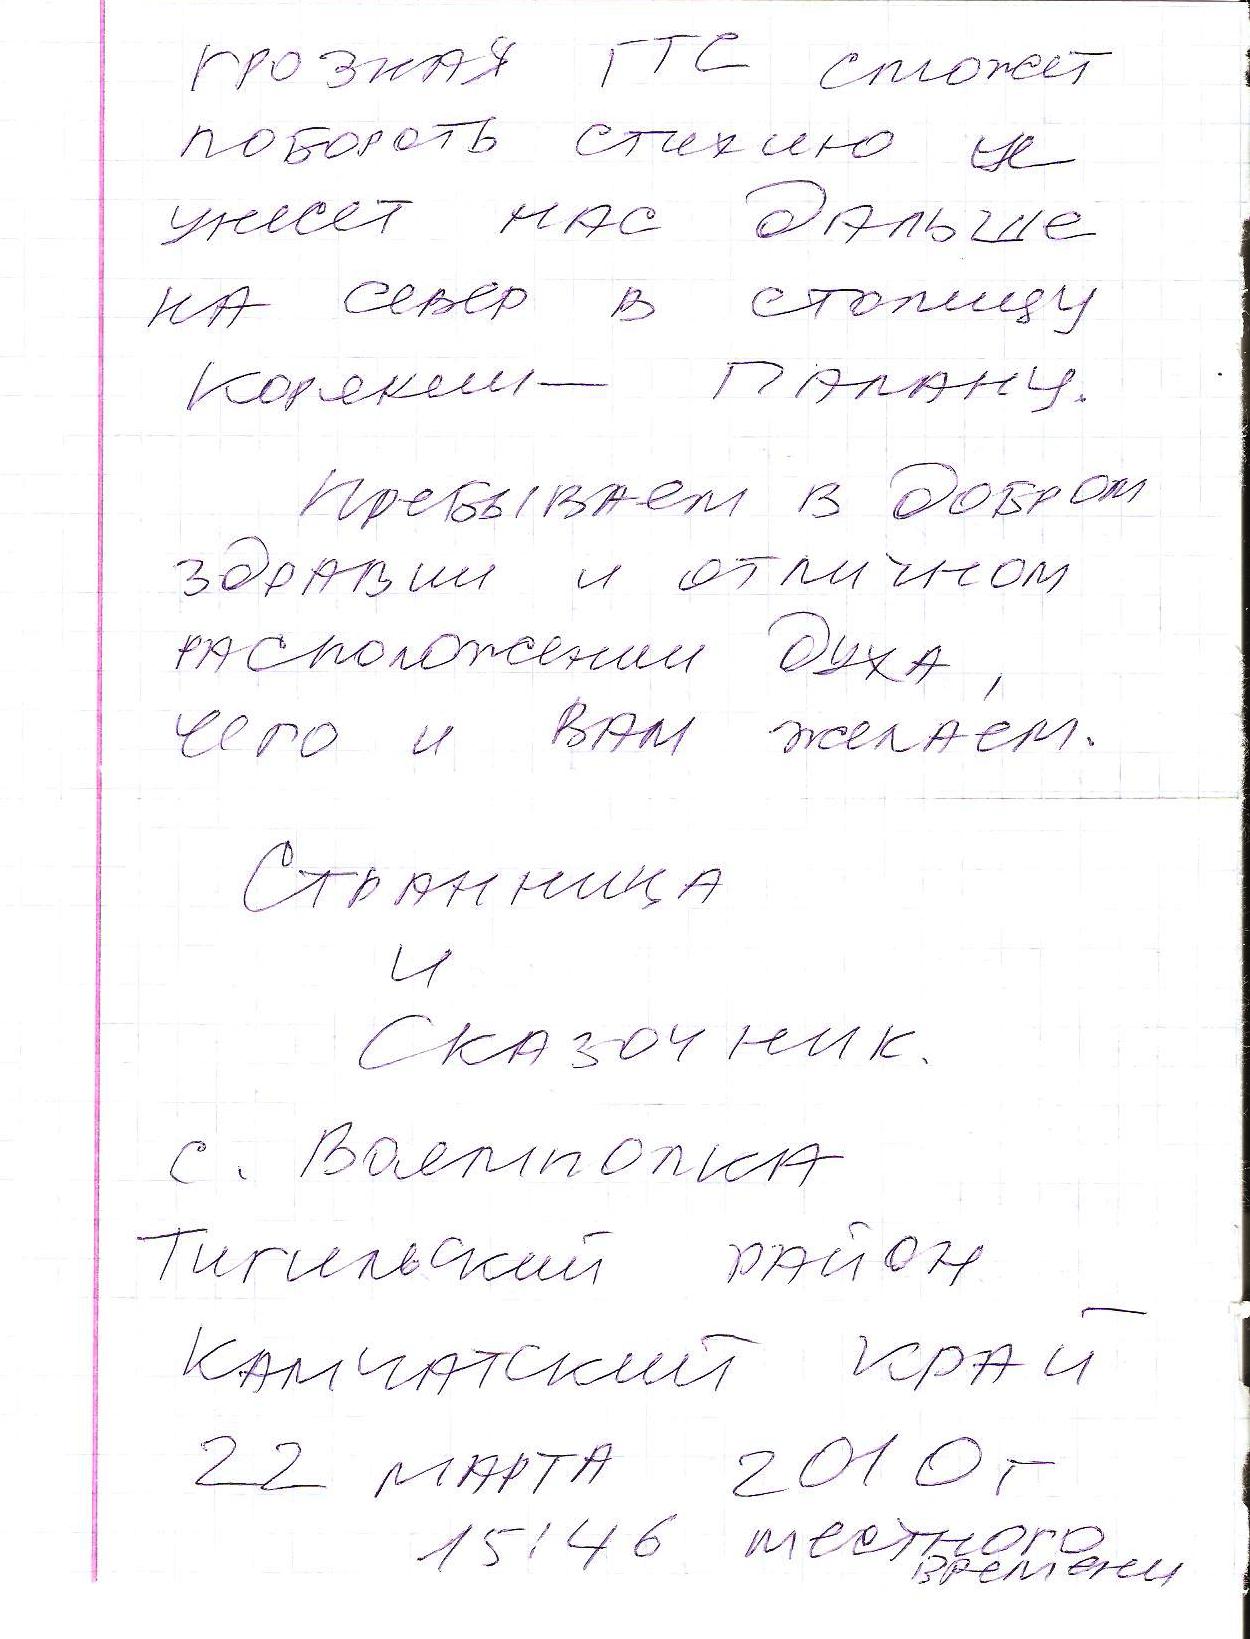 грозная ГТС сможет
побороть стихию и
унесёт нас дальше
на север в столицу
Корякии — Палану.
Пребываем в добром
здравии и отличном
расположении духа,
чего и Вам желаем.
Странница
и
Сказочник.
с. Воямполка
Тигильский район
Камчатский край
22 марта 2010 г
15:46 местного
времени